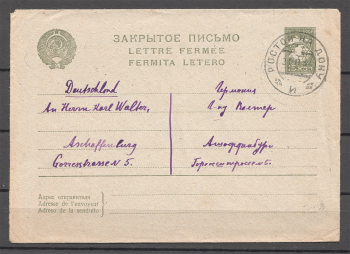 ЗАКРЫТОЕ ПИСЬМО
LETTRE FERMÉE
FERMITA LETERO
РОСТОВ Н ДОНУ
Deutschland
An Herrn Karl Walter,
Aschaffenburg
Gorresstrasse N 5.
Германия
Ашаффенбург
Адрес отправителя
Adresse de l'envoyeur
Adreso de la sendinto